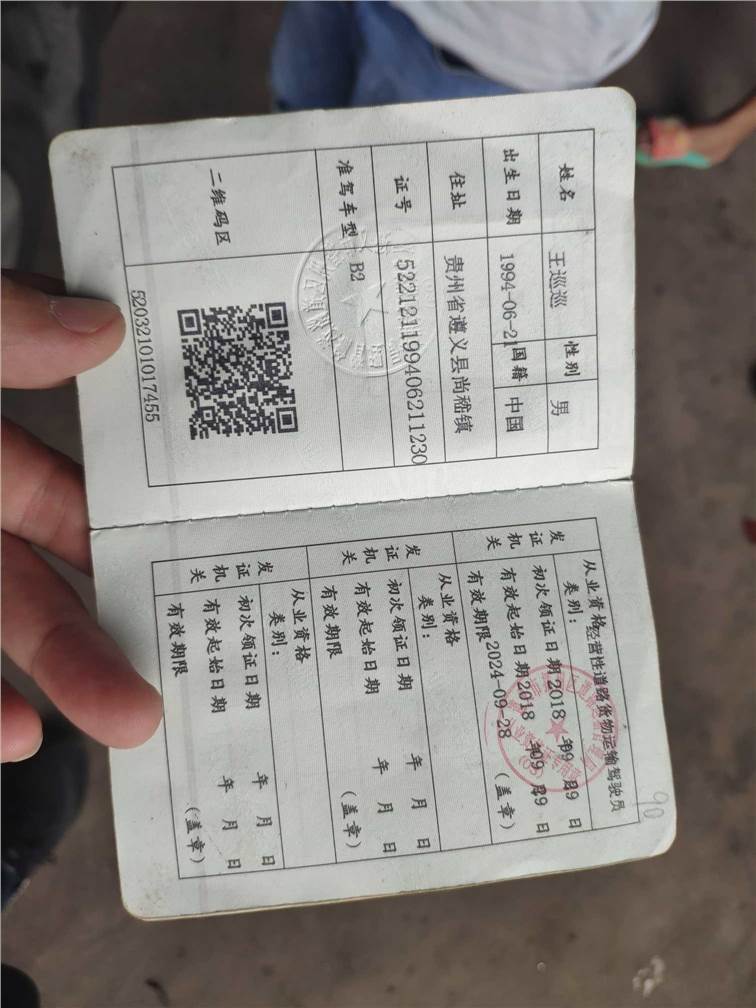 姓名 王巡巡 性别 男
出生日期 1994-06-21 国籍 中国
住址 贵州省遵义县尚嵇镇
证号 522121199406211230
准驾车型 B2
二维码区
52032101017455
发证机关
从业资格类别：经营性道路货物运输驾驶员
初次领证日期 2018 年 09 月 29 日
有效起始日期 2018 年 09 月 29 日
有效期限 2024-09-28 （盖章）
发证机关
从业资格类别：
初次领证日期 年 月 日
有效起始日期 年 月 日
有效期限 （盖章）
发证机关
从业资格类别：
初次领证日期 年 月 日
有效起始日期 年 月 日
有效期限 （盖章）
90